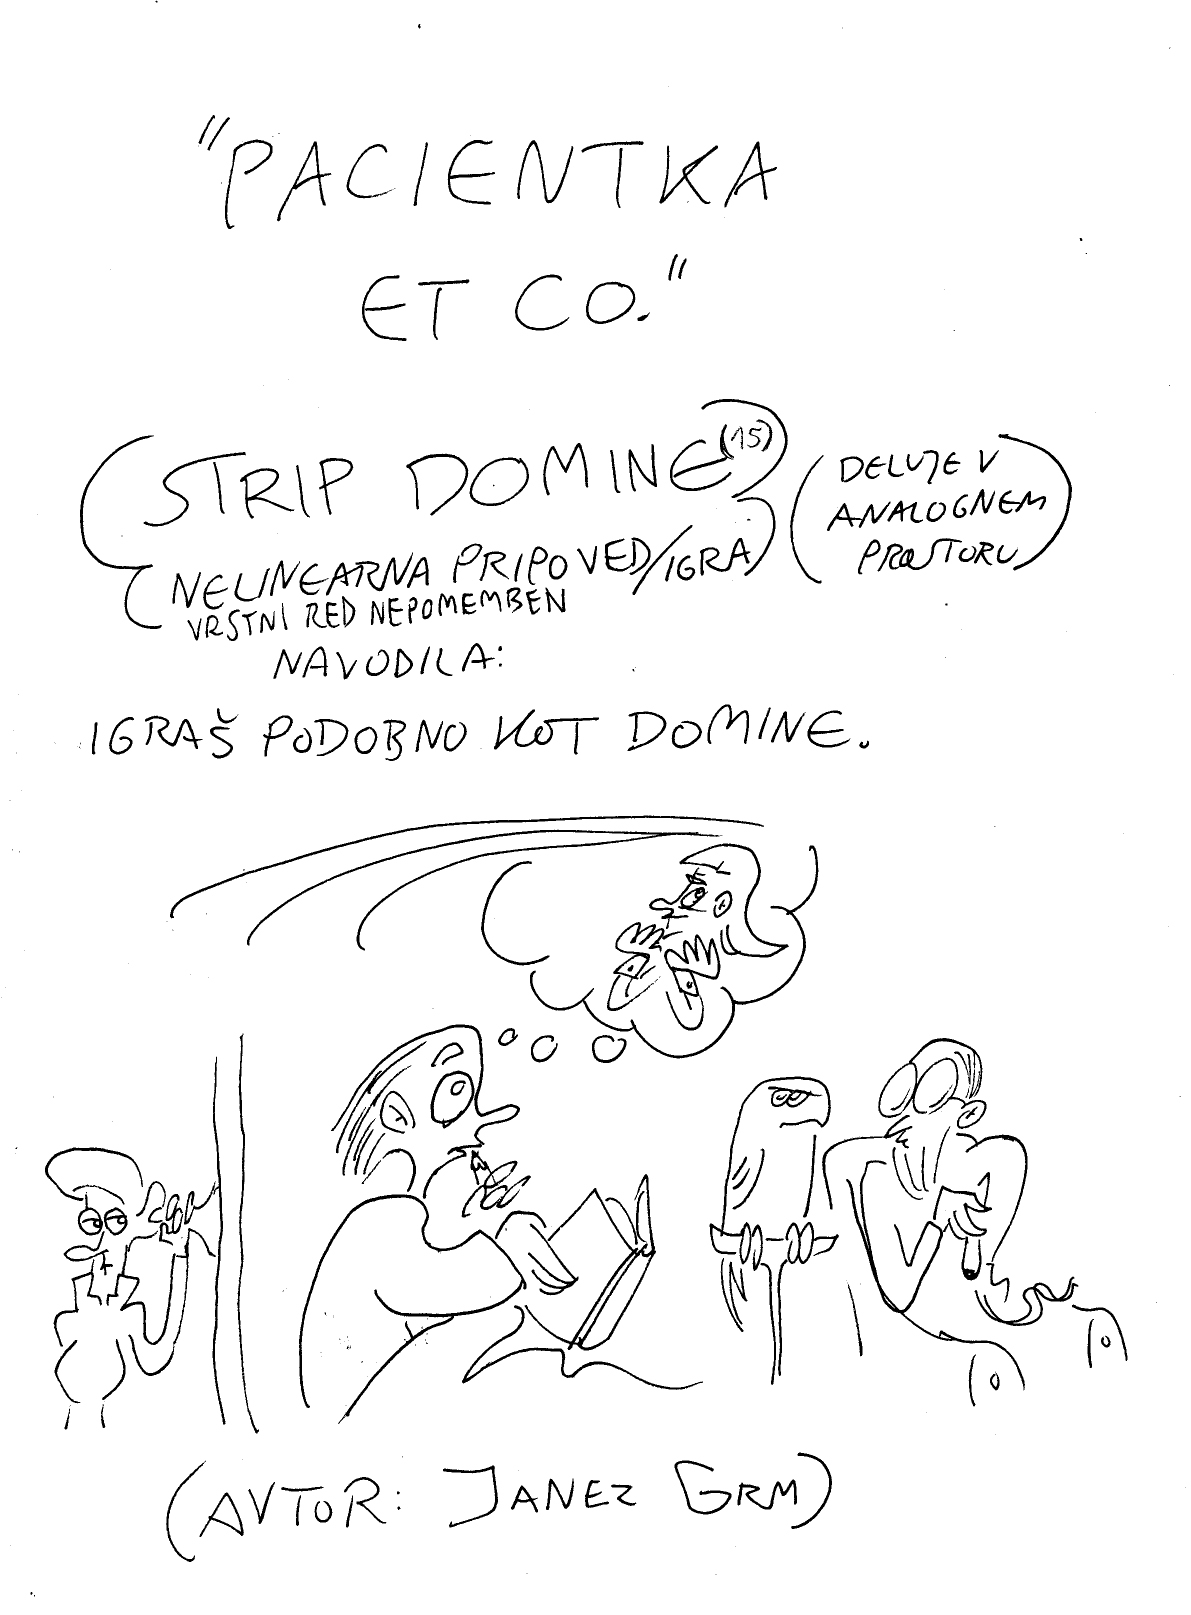 "PACIENTKA
ET CO."
(STRIP DOMINE (15))
(NELINEARNA PRIPOVED/IGRA)
VRSTNI RED NEPOMEMBEN
(DELUJE V
ANALOGNEM
PROSTORU)
NAVODILA:
IGRAŠ PODOBNO KOT DOMINE.
(AVTOR: JANEZ GRM)